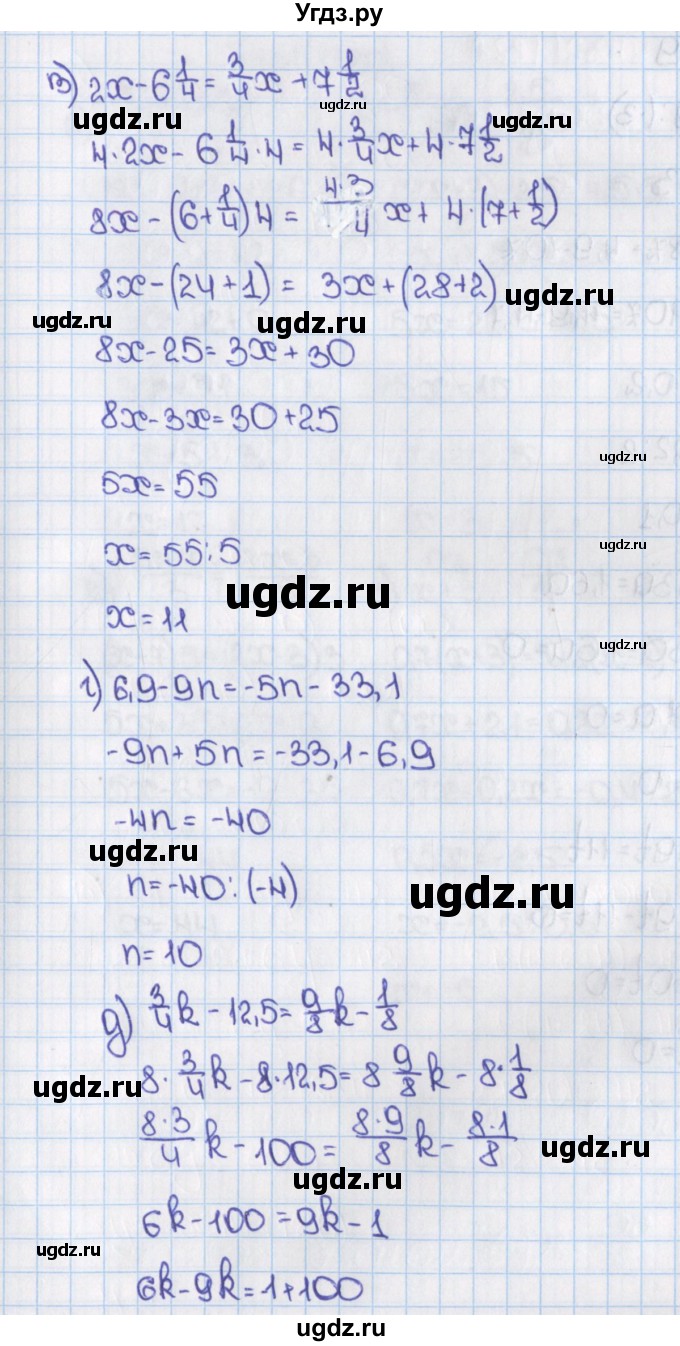 Угдз.ру
в) 2x - 6 1/4 = 3/4 x + 7 1/2
ugdz.ru
ugdz.ru
4·2x - 6 1/4 · 4 = 4 · 3/4 x + 4 · 7 1/2
8x - (6 + 1/4) 4 = 4·3/4 x + 4 · (7 + 1/2)
8x - (24 + 1) = 3x + (28 + 2)
ugdz.ru
ugdz.ru
ugdz.ru
8x - 25 = 3x + 30
8x - 3x = 30 + 25
ugdz.ru
5x = 55
x = 55 : 5
ugdz.ru
ugdz.ru
x = 11
ugdz.ru
г) 6,9 - 9n = -5n - 33,1
-9n + 5n = -33,1 - 6,9
-4n = -40
ugdz.ru
n = -40 : (-4)
ugdz.ru
n = 10
д) 3/4 k - 12,5 = 9/8 k - 1/8
8 · 3/4 k - 8 · 12,5 = 8 9/8 k - 8 · 1/8
ugdz.ru
8·3/4 k - 100 = 8·9/8 k - 8·1/8
ugdz.ru
ugdz.ru
6k - 100 = 9k - 1
ugdz.ru
6k - 9k = 1 + 100
ugdz.ru